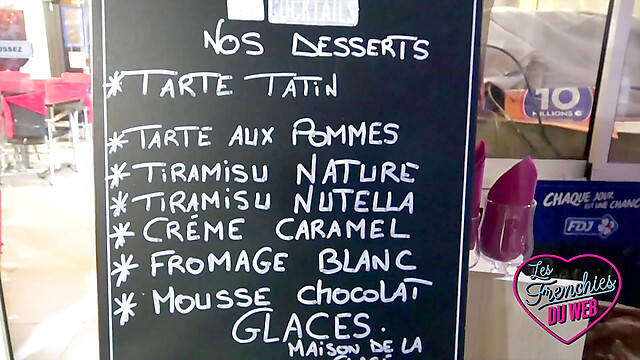 COCKTAILS
NOS DESSERTS
* TARTE TATIN
* TARTE AUX POMMES
* TIRAMISU NATURE
* TIRAMISU NUTELLA
* CRÉME CARAMEL
* FROMAGE BLANC
* MOUSSE CHOCOLAT
GLACES.
MAISON DE LA
10
MILLIONS €
CHAQUE JOUR
EST UNE CHANCE
FDJ
Les
Frenchies
DU WEB